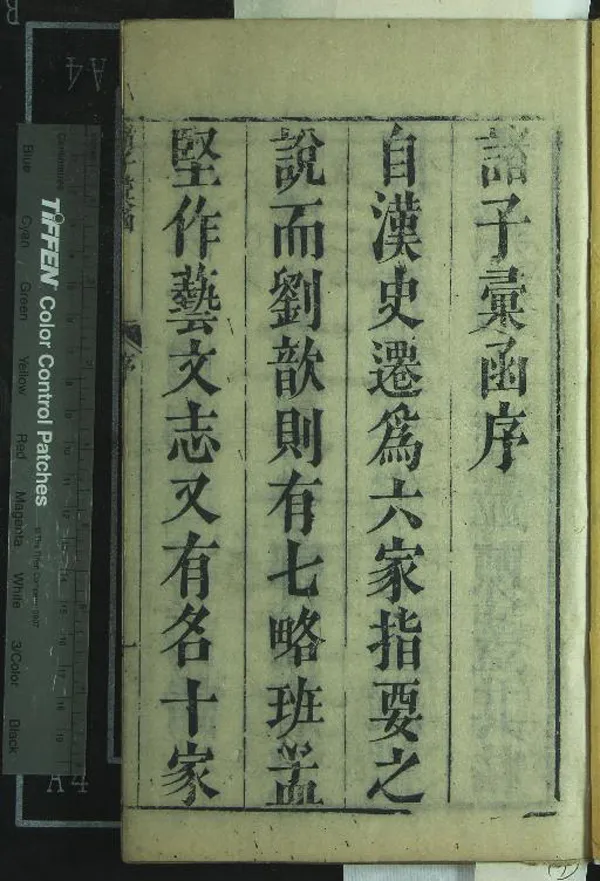 諸子彙函序
自漢史遷爲六家指要之
說而劉歆則有七略班孟
堅作藝文志又有名十家
序
TIFFEN Color Control Patches
Blue Cyan Green Yellow Red Magenta White 3/Color Black
Centimetres
A4
A4